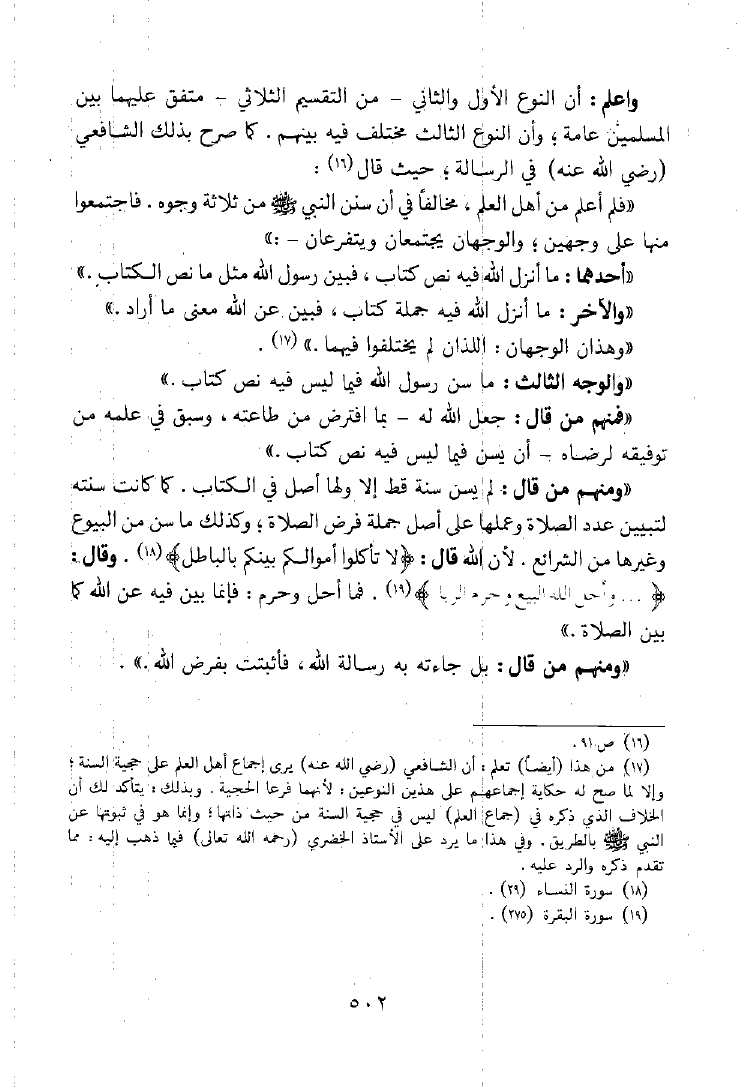 واعلم : أن النوع الأول والثاني – من التقسيم الثلاثي – متفق عليهما بين
المسلمين عامة ؛ وأن النوع الثالث مختلف فيه بينهم . كما صرح بذلك الشافعي
(رضي الله عنه) في الرسالة ؛ حيث قال (١٦) :
«فلم أعلم من أهل العلم ، مخالفاً في أن سنن النبي ﷺ من ثلاثة وجوه . فاجتمعوا
منها على وجهين ؛ والوجهان يجتمعان ويتفرعان – :»
«أحدهما : ما أنزل الله فيه نص كتاب ، فبين رسول الله مثل ما نص الكتاب .»
«والآخر : ما أنزل الله فيه جملة كتاب ، فبين عن الله معنى ما أراد .»
«وهذان الوجهان : اللذان لم يختلفوا فيهما .» (١٧) .
«والوجه الثالث : ما سن رسول الله فيما ليس فيه نص كتاب .»
«فمنهم من قال : جعل الله له – بما افترض من طاعته ، وسبق في علمه من
توفيقه لرضاه – أن يسن فيما ليس فيه نص كتاب .»
«ومنهم من قال : لم يسن سنة قط إلا ولها أصل في الكتاب . كما كانت سنته
لتبيين عدد الصلاة وعملها على أصل جملة فرض الصلاة ؛ وكذلك ما سن من البيوع
وغيرها من الشرائع . لأن الله قال : ﴿لا تأكلوا أموالكم بينكم بالباطل﴾ (١٨) . وقال :
﴿ ... وأحل الله البيع وحرم الربا ﴾ (١٩) . فما أحل وحرم : فإنما بين فيه عن الله كما
بين الصلاة .»
«ومنهم من قال : بل جاءته به رسالة الله ، فأثبتت بفرض الله .» .
(١٦) ص ٩١ .
(١٧) من هذا (أيضاً) تعلم : أن الشافعي (رضي الله عنه) يرى إجماع أهل العلم على حجية السنة ؛
وإلا لما صح له حكاية إجماعهم على هذين النوعين : لأنهما فرعا الحجية . وبذلك : يتأكد لك أن
الخلاف الذي ذكره في (جماع العلم) ليس في حجية السنة من حيث ذاتها ؛ وإنما هو في ثبوتها عن
النبي ﷺ بالطريق . وفي هذا ما يرد على الأستاذ الخضري (رحمه الله تعالى) فيما ذهب إليه : مما
تقدم ذكره والرد عليه .
(١٨) سورة النساء (٢٩) .
(١٩) سورة البقرة (٢٧٥) .
٥٠٢